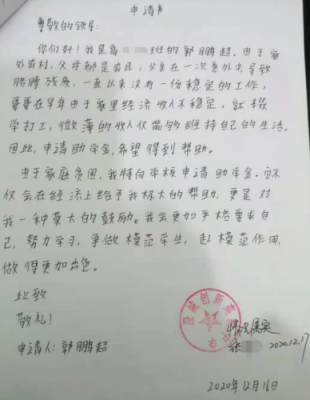 申请书
尊敬的领导:
你们好!我是高 班的郭鹏超。由于家
住农村,父母都是农民,父亲在一次意外中导致
胳膊残废,一直以来没有一份稳定的工作,
哥哥在早年由于家里经济收入不稳定,就辍
学打工,微薄的收入仅能够维持自己的生活。
因此,申请助学金,希望得到帮助。
由于家庭贫困,我特向学校申请助学金。它不
仅会在经济上给予我极大的帮助,更是对
我一种莫大的鼓励。我会更加严格要求自
己,努力学习,争做模范学生,起模范作用,
做得更加出色。
此致
敬礼!
情况属实
张 2020.12.17
申请人:郭鹏超
2020年12月16日